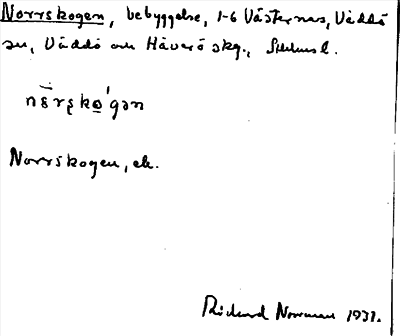 Norrskogen, bebyggelse, 1-6 Västernäs, Väddö
sn, Väddö och Häverö skg., Sthlms l.
nörskoʹgən
Norrskogen, ek.
Rickard Norrman 1931.